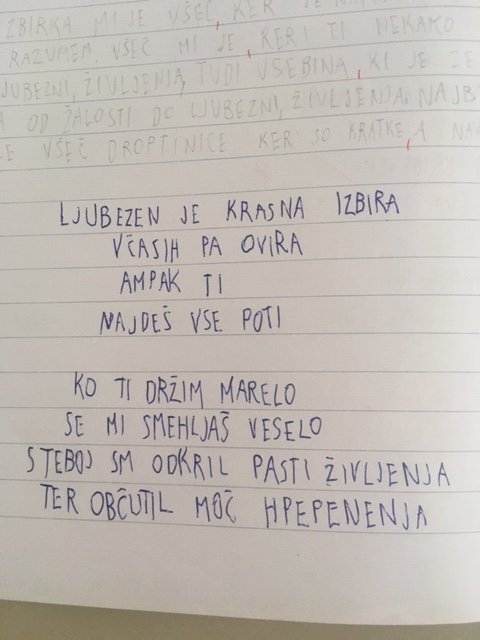 ZBIRKA MI JE VŠEČ, KER JE
RAZUMEM. VŠEČ MI JE, KER I TI NEKAKO
LJUBEZNI, ŽIVLJENJA, TUDI VSEBINA, KI JE ZE
OD ŽALOSTI DO LJUBEZNI, ŽIVLJENJA. NAJB
VŠEČ DROPTINICE KER SO KRATKE, A NAV
LJUBEZEN JE KRASNA IZBIRA
VČASIH PA OVIRA
AMPAK TI
NAJDEŠ VSE POTI
KO TI DRŽIM MARELO
SE MI SMEHLJAŠ VESELO
S TEBOJ SM ODKRIL PASTI ŽIVLJENJA
TER OBČUTIL MOČ HPEPENENJA